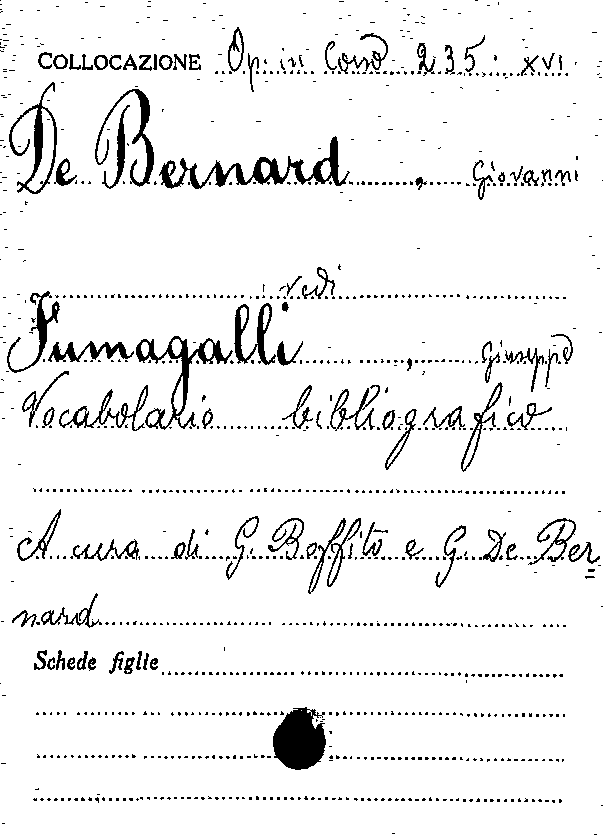 COLLOCAZIONE Op. in Cons 235. XVI.
De Bernard, Giovanni
vedi
Fumagalli, Giuseppe
Vocabolario bibliografico
A cura di G. Boffito e G. De Ber=
nard
Schede figlie